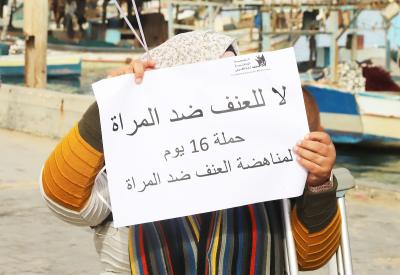 لا للعنف ضد المراة
حملة 16 يوم
لمناهضة العنف ضد المراة